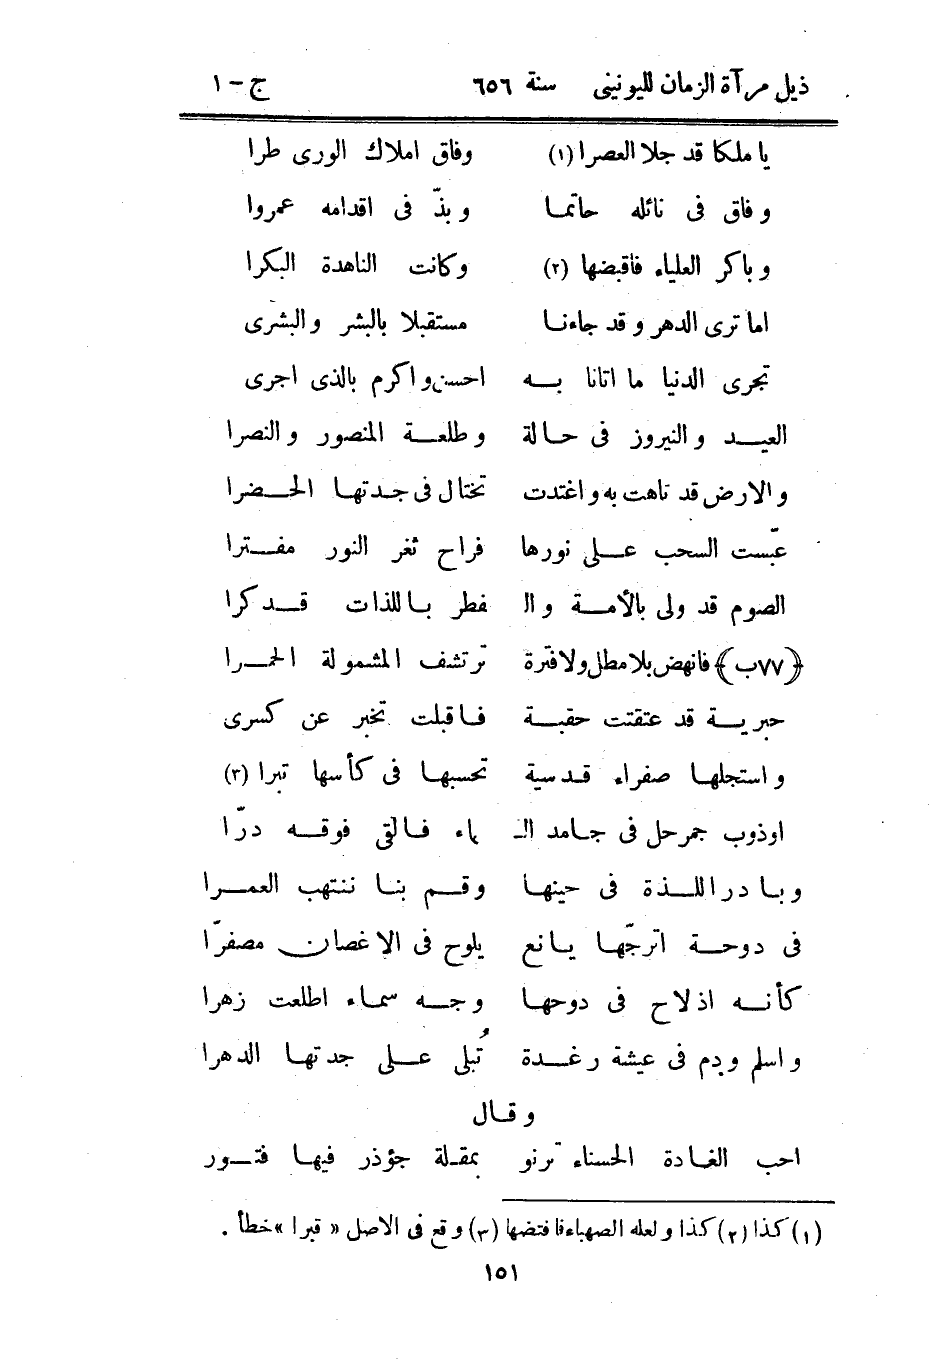 ذيل مرآة الزمان لليونينى سنة ٦٥٦ ج – ١
يا ملكا قد جلا العصرا (١) وفاق املاك الورى طرا
وفاق فى نائله حاتما وبذّ فى اقدامه عمروا
وباكر العلياء فاقبضها (٢) وكانت الناهدة البكرا
اما ترى الدهر وقد جاءنا مستقبلا بالبشر والبشرى
تجرى الدنيا ما اتانا به احسن واكرم بالذى اجرى
العيد والنيروز فى حالة وطلعة المنصور والنصرا
والارض قد تاهت به واغتدت تختال فى جدتها الخضرا
عبّست السحب على نورها فراح ثغر النور مفترا
الصوم قد ولى بالأمة وال فطر باللذات قد كرا
﴿٧٧ب﴾ فانهض بلا مطل ولا فترة ترتشف المشمولة الحمرا
حبرية قد عتقت حقبة فاقبلت تخبر عن كسرى
واستجلها صفراء قدسية تحسبها فى كأسها تبرا (٣)
اوذوب جمر حل فى جامد الـ ماء فالقى فوقه درّا
وبادر اللذة فى حينها وقم بنا ننتهب العمرا
فى دوحة اترجّها يانع يلوح فى الاغصان مصفرّا
كأنه اذ لاح فى دوحها وجه سماء اطلعت زهرا
واسلم ودم فى عيشة رغدة تُبلى على جدتها الدهرا
وقال
احب الغادة الحسناء ترنو بمقلة جؤذر فيها فتور
(١) كذا (٢) كذا ولعله الصهباء فافتضها (٣) وقع فى الاصل « قبرا » خطأ .
١٥١